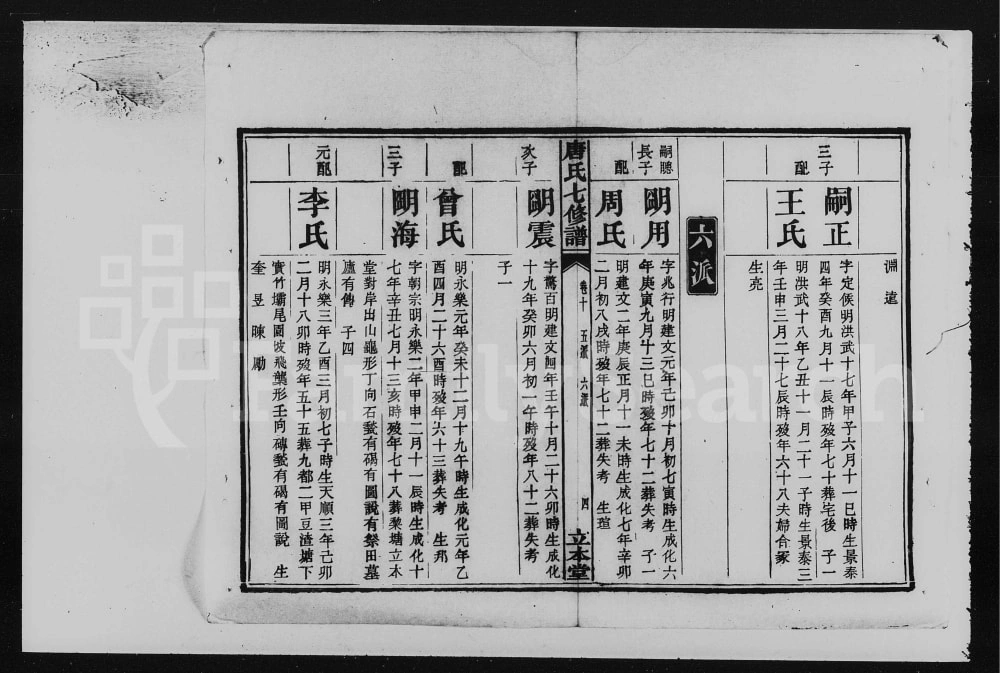 淵 遠
三子
嗣正
字定候明洪武十七年甲子六月十一巳時生景泰
四年癸酉九月十一辰時歿年七十葬宅後 子一
配
王氏
明洪武十八年乙丑十一月二十一子時生景泰三
年壬申三月二十七辰時歿年六十八夫婦合冢
生亮
六派
嗣聰
長子
明用
字兆行明建文元年己卯十月初七寅時生成化六
年庚寅九月十三巳時歿年七十二葬失考 子一
配
周氏
明建文二年庚辰正月十一未時生成化七年辛卯
二月初八戌時歿年七十二葬失考 生瑄
唐氏七修譜
卷十 五派 六派
四
立本堂
次子
明震
字驚百明建文四年壬午十月二十六卯時生成化
十九年癸卯六月初一午時歿年八十二葬失考
子一
配
曾氏
明永樂元年癸未十二月十九午時生成化元年乙
酉四月二十六酉時歿年六十三葬失考 生邦
三子
明海
字朝宗明永樂二年甲申二月十一辰時生成化十
七年辛丑七月十三亥時歿年七十八葬黎塘立本
堂對岸出山龜形丁向石甃有碣有圖說有祭田墓
廬有傳 子四
元配
李氏
明永樂三年乙酉三月初七子時生天順三年己卯
二月十八卯時歿年五十五葬九都二甲豆渣塘下
實竹壩尾園坡飛龔形壬向磚甃有碣有圖說 生
奎 昱 暕 勵